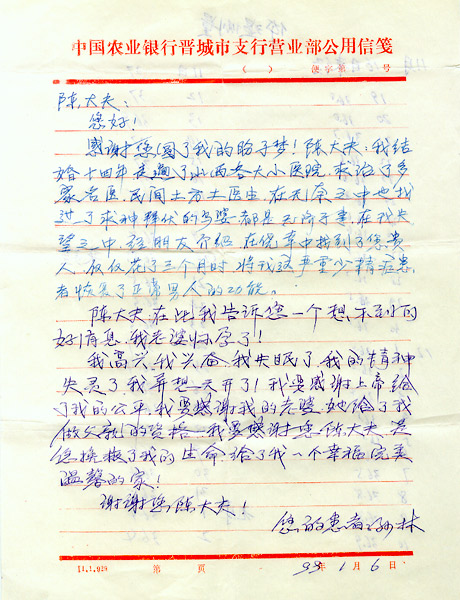 中国农业银行晋城市支行营业部公用信笺
( ) 便字第 号
陈大夫:
您好!
感谢您圆了我的盼子梦!陈大夫:我结
婚十四年走遍了山西各大小医院,求治了多
家名医,民间土方土医生,在无奈之中也找
过了求神拜仙的巫婆都是无济于事,在我失
望之中经朋友介绍在优生中找到了您贵
人,仅仅花了三个月时将我这严重少精症患
者恢复了正常男人的功能。
陈大夫在此我告诉您一个想不到的
好消息,我老婆怀孕了!
我高兴,我兴奋,我失眠了,我的精神
失灵了我异想天开了!我要感谢上帝给
了我的公平,我要感谢我的老婆,她给了我
做父亲的资格,我要感谢您陈大夫,是
您挽救了我的生命给了我一个幸福完美
温馨的家!
谢谢您陈大夫!
您的患者孙林
第 页
99年1月6日